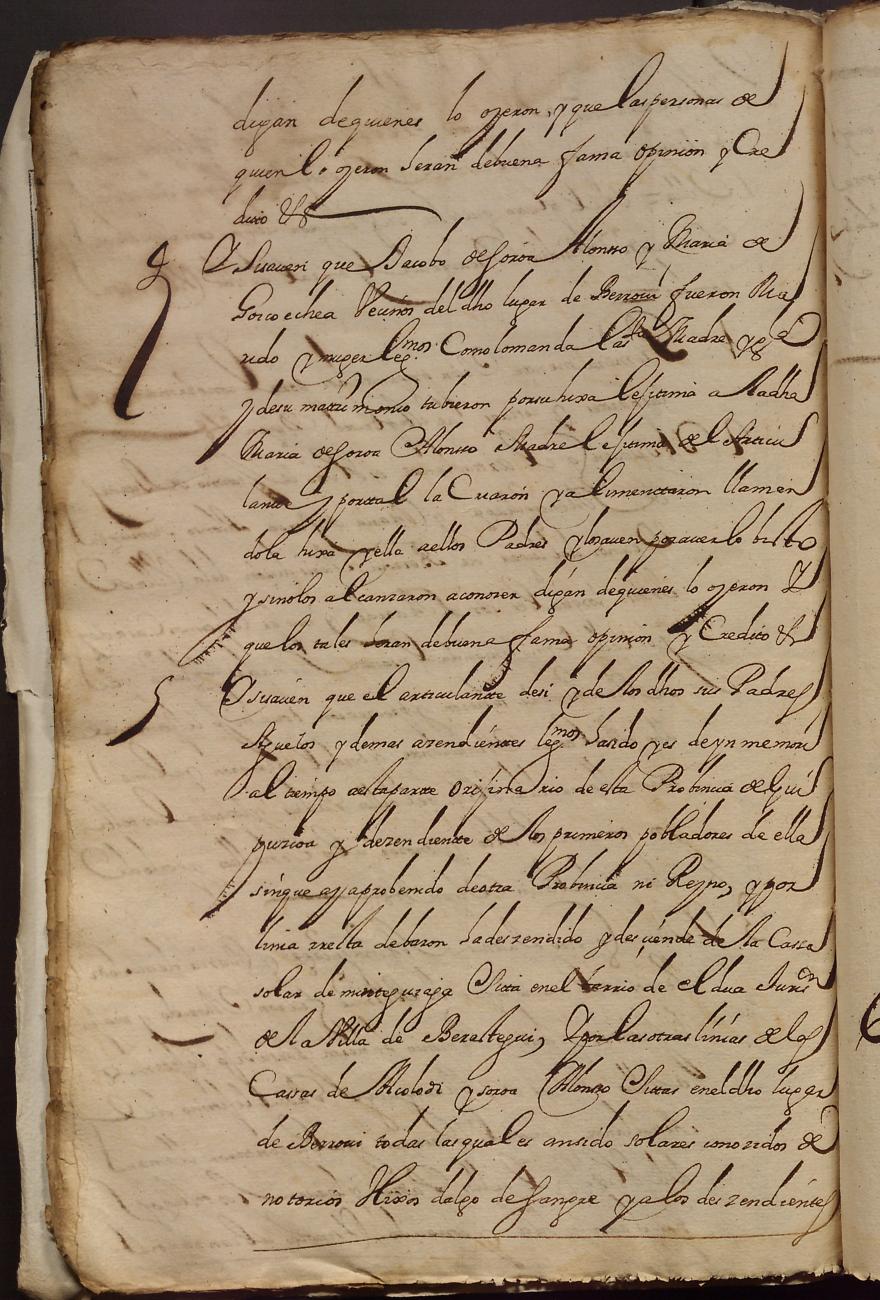 digan de quienes lo oyeron, y que las personas de
quien lo oyeron seran de buena fama opinion y Cre
dito &
Y si saven que Jacobo de Soroa Alonsso y Maria de
Goicoechea Vecinos del dho lugar de Berrovi fueron Ma
rido y muger leg.mos Como lo manda la sta Madre yg.a
y de su matrimonio tubieron por su hixa lexitima a la dha
Maria de Soroa Alonsso Madre lexitima del Articu
lante y por tal la Criaron y alimentaron llamen
dola hixa y ella a ellos Padres y lo saven por averlo bisto
y si no los alcanzaron a conozer digan de quienes lo oyeron y
que los tales seran de buena fama opinion y Credito &
5 Y si saven que el articulante de si y de los dhos sus Padres
Aguelos y demas azendientes leg.mos ha sido y es de ynmemori
al tiempo a esta parte originario de esta Probincia de Guy
puzcoa y dezendiente de los primeros pobladores de ella
sin que aya probenido de otra Probincia ni Reyno, y por
linia rrecta de baron ha deszendido y desciende de la Cassa
solar de minteguiaga Sita en el barrio de eldua Juris.on
de la Villa de Berastegui, Y por las otras linias de las
Cassas de Alcolodi y soroa Alonso Sitas en el dho lugar
de Berrovi todas las quales an sido solares conozidos de
notorios Hixos dalgo de sangre y a los deszendientes